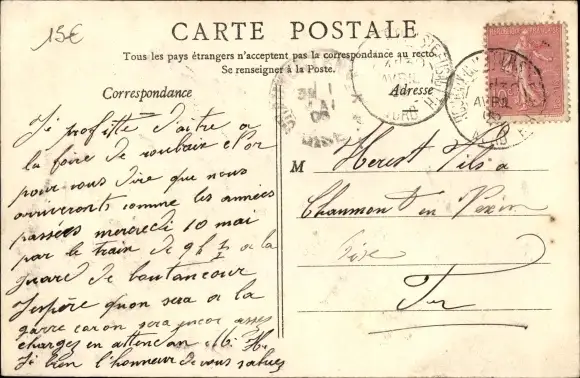 15€
CARTE POSTALE
Tous les pays étrangers n'acceptent pas la correspondance au recto
Se renseigner à la Poste.
Correspondance
Adresse
Je profitte d'aitre a
la foire de roubaix
pour vous dire que nous
arriverons comme les années
passées mercredi 10 mai
par le train de 9h a la
guare de boutancour
J'espère quon sera a la
garre caron sera encor assez
charges en attendan M. H.
Je bien l'honneur de vous salues
M Herest Fils a
Chaumont en Vexin
Oise
AVRIL
NORD